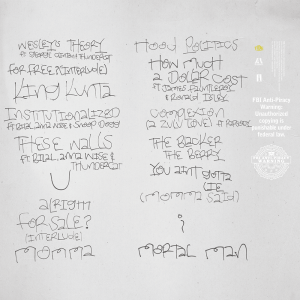 WESLEY'S THEORY
ft. GEORGE CLINTON & THUNDERCAT
FOR FREE? (INTERLUDE)
KING KUNTA
INSTITUTIONALIZED
ft BILAL, ANNA WISE & SNOOP DOGG
THESE WALLS
ft BILAL, ANNA WISE &
THUNDERCAT
U
ALRIGHT
FOR SALE?
(INTERLUDE)
MOMMA
HOOD POLITICS
HOW MUCH
A DOLLAR COST
ft JAMES FAUNTLEROY
& RONALD ISLEY
COMPLEXION
(A ZULU LOVE) ft RAPSODY
THE BLACKER
THE BERRY
YOU AIN'T GOTTA
LIE
(MOMMA SAID)
i
MORTAL MAN
FBI Anti-Piracy
Warning:
Unauthorized
copying is
punishable under
federal law.